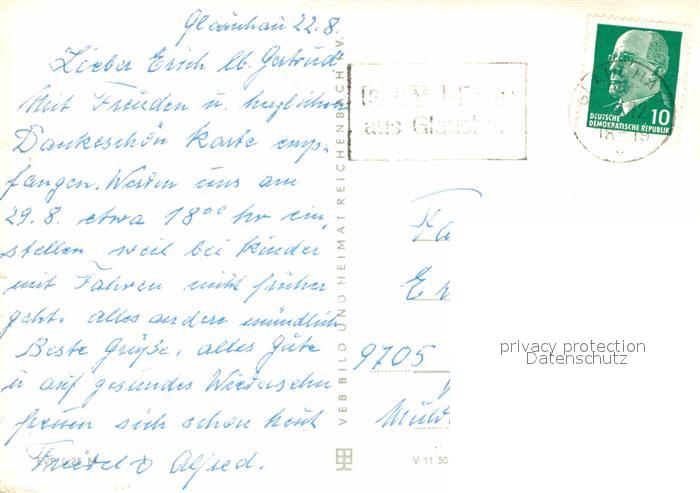 Glauchau 22.8.
Lieber Erich lb. Gertrud
Mit Freuden u. herzlichen
Dankeschön Karte emp-
fangen. Werden uns am
29.8. etwa 18⁰⁰ Uhr ein-
stellen weil bei Kinder
mit Fahren nicht früher
geht. alles andere mündlich
Beste Grüße, alles Gute
u auf gesundes Wiedersehn
freuen sich schon heut
Friedel & Alfred.
VEB BILD UND HEIMAT REICHENBACH I.V.
aus
10
DEUTSCHE
DEMOKRATISCHE REPUBLIK
9705
V 11 50
privacy protection
Datenschutz